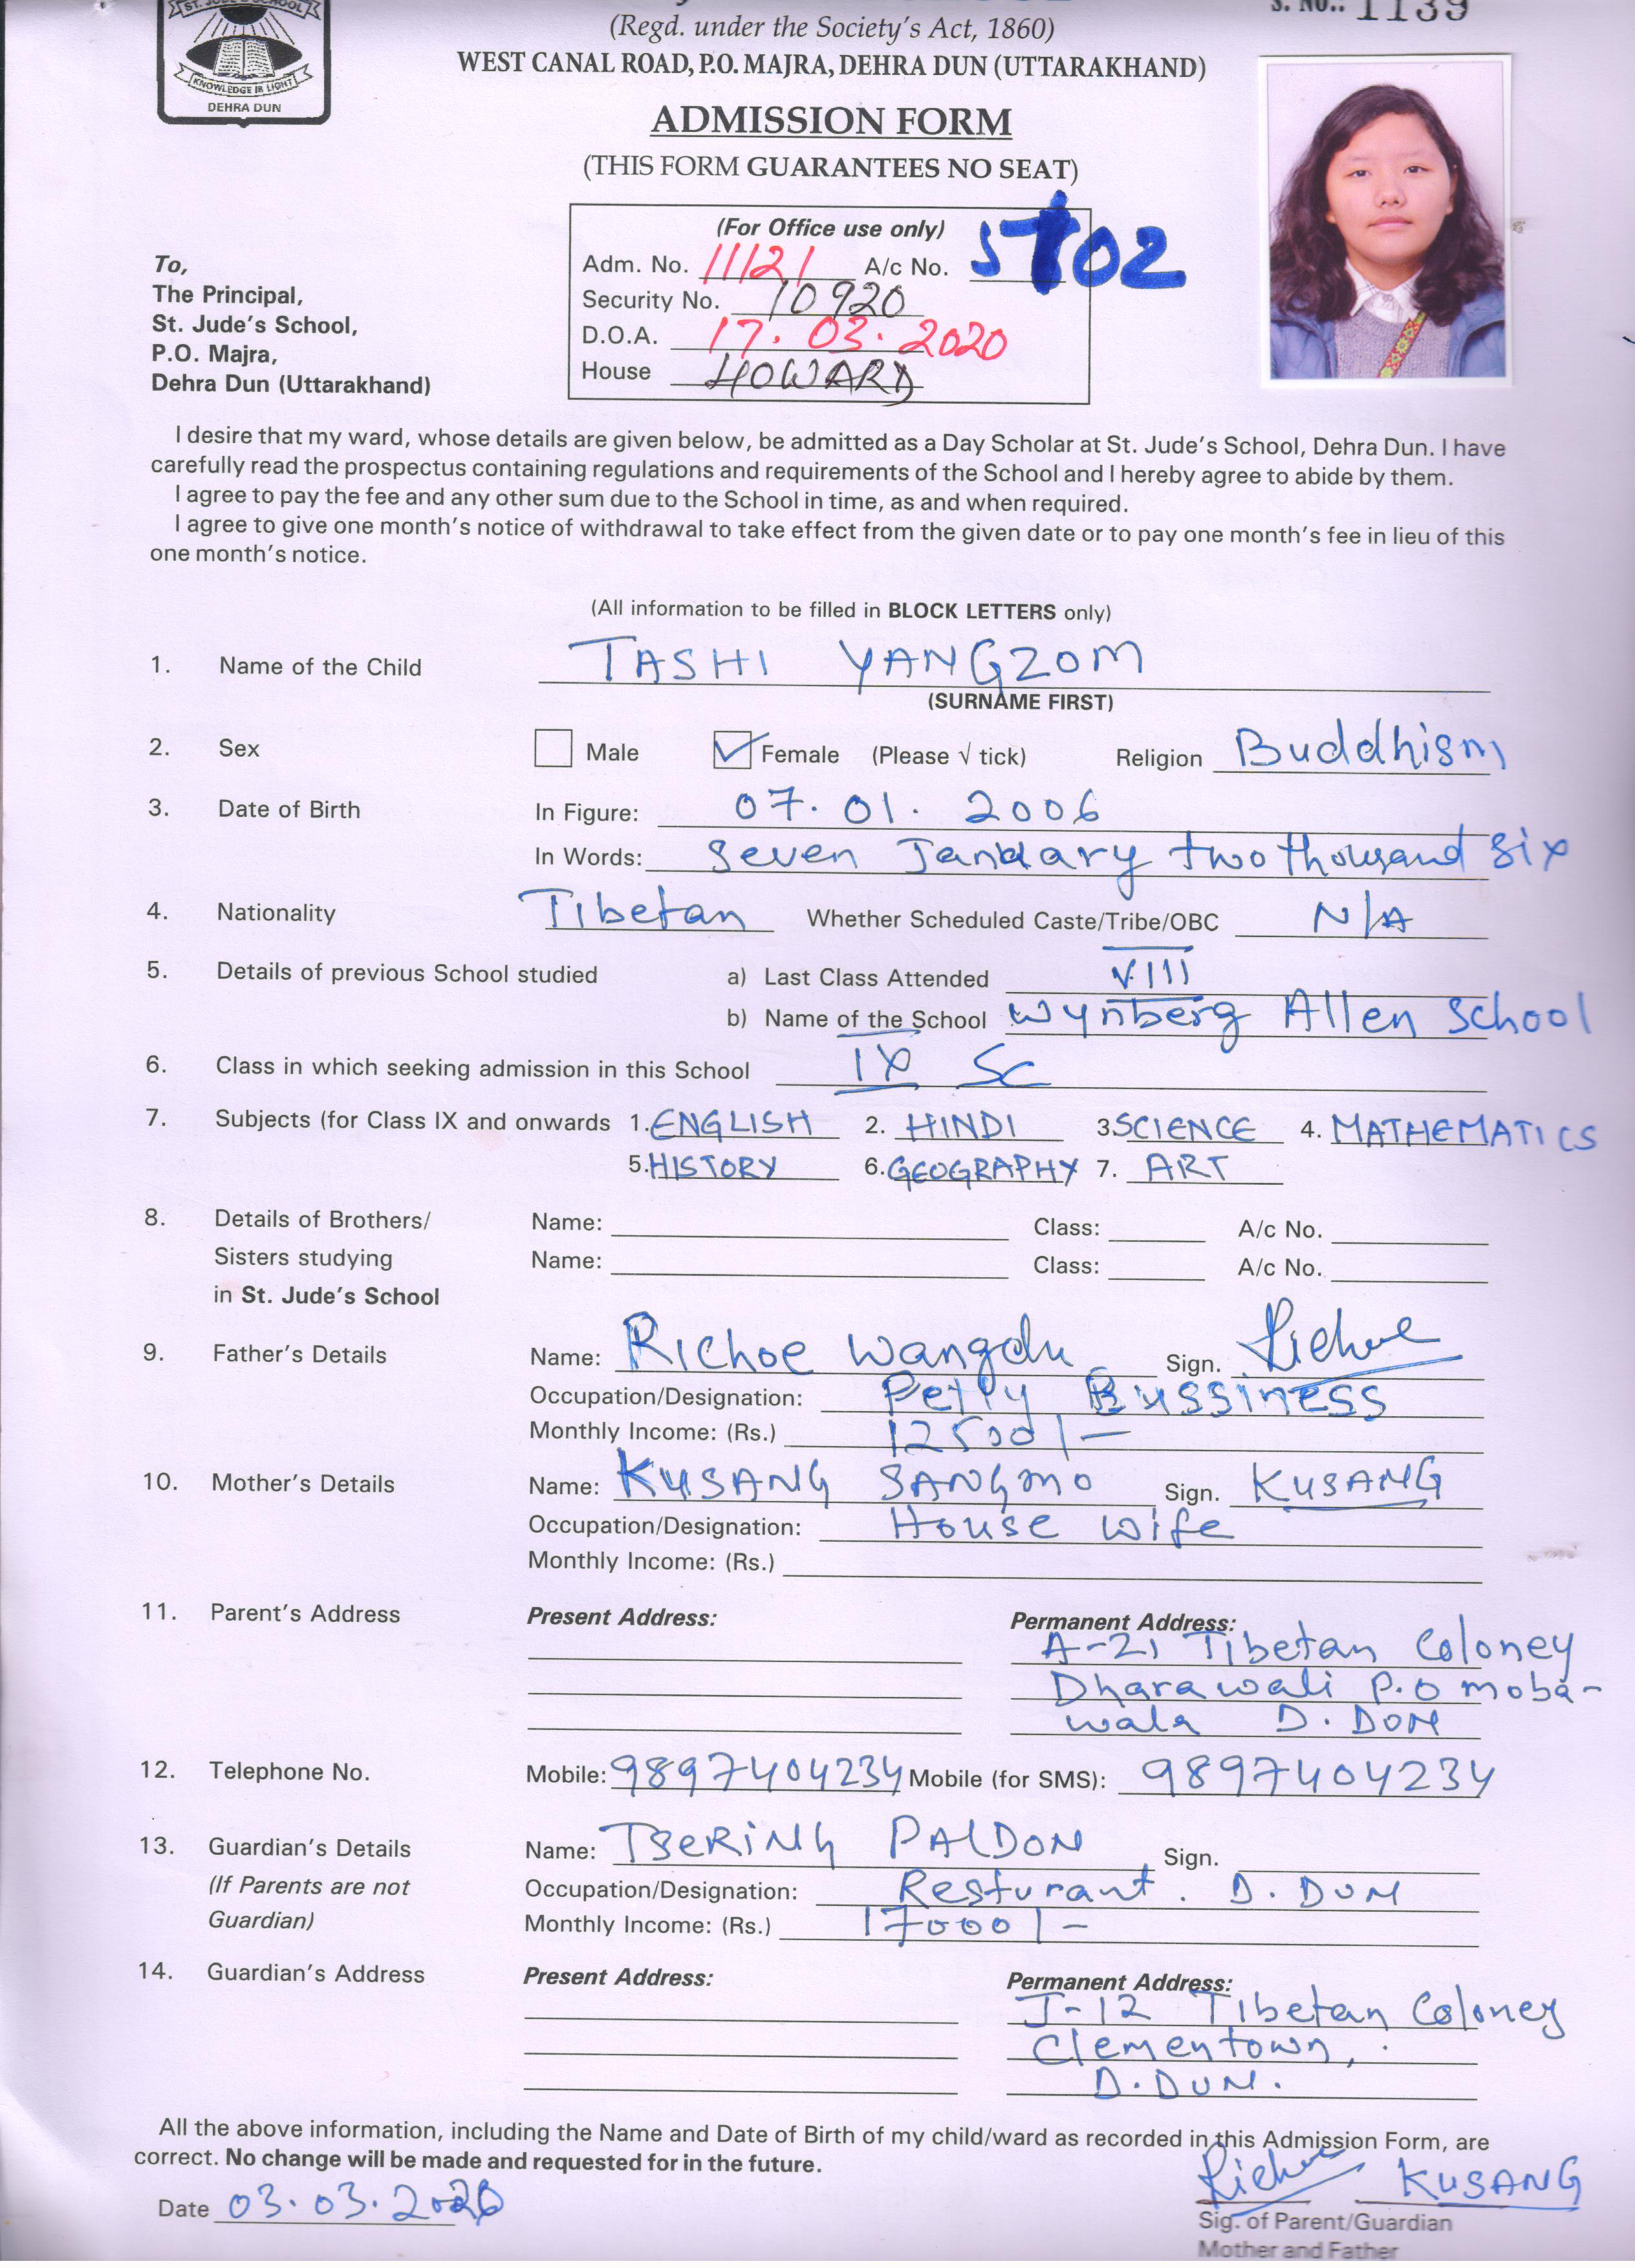 ST. JUDE'S SCHOOL
KNOWLEDGE IS LIGHT
DEHRA DUN
S. NO.: 1139
(Regd. under the Society's Act, 1860)
WEST CANAL ROAD, P.O. MAJRA, DEHRA DUN (UTTARAKHAND)
ADMISSION FORM
(THIS FORM GUARANTEES NO SEAT)
(For Office use only)
Adm. No. 11121 A/c No. 5T02
Security No. 10920
D.O.A. 17.03.2020
House HOWARD
To,
The Principal,
St. Jude's School,
P.O. Majra,
Dehra Dun (Uttarakhand)
I desire that my ward, whose details are given below, be admitted as a Day Scholar at St. Jude's School, Dehra Dun. I have
carefully read the prospectus containing regulations and requirements of the School and I hereby agree to abide by them.
I agree to pay the fee and any other sum due to the School in time, as and when required.
I agree to give one month's notice of withdrawal to take effect from the given date or to pay one month's fee in lieu of this
one month's notice.
(All information to be filled in BLOCK LETTERS only)
1. Name of the Child TASHI YANGZOM
(SURNAME FIRST)
2. Sex Male Female (Please √ tick) Religion Buddhism
3. Date of Birth In Figure: 07.01.2006
In Words: Seven January two thousand six
4. Nationality Tibetan Whether Scheduled Caste/Tribe/OBC N/A
5. Details of previous School studied a) Last Class Attended VIII
b) Name of the School Wynberg Allen School
6. Class in which seeking admission in this School IX Sc
7. Subjects (for Class IX and onwards 1. ENGLISH 2. HINDI 3 SCIENCE 4. MATHEMATICS
5. HISTORY 6. GEOGRAPHY 7. ART
8. Details of Brothers/ Name: Class: A/c No.
Sisters studying Name: Class: A/c No.
in St. Jude's School
9. Father's Details Name: Richoe Wangdu Sign. Richoe
Occupation/Designation: Petty Bussiness
Monthly Income: (Rs.) 12500/-
10. Mother's Details Name: KUSANG SANGMO Sign. KUSANG
Occupation/Designation: House wife
Monthly Income: (Rs.)
11. Parent's Address Present Address: Permanent Address:
A-21 Tibetan Coloney
Dharawali P.O moba-
wala D. DON
12. Telephone No. Mobile: 9897404234 Mobile (for SMS): 9897404234
13. Guardian's Details Name: TSERING PALDON Sign.
(If Parents are not Occupation/Designation: Resturant. D. DUN
Guardian) Monthly Income: (Rs.) 17000/-
14. Guardian's Address Present Address: Permanent Address:
J-12 Tibetan Coloney
Clementown,
D.DUN.
All the above information, including the Name and Date of Birth of my child/ward as recorded in this Admission Form, are
correct. No change will be made and requested for in the future.
Richoe KUSANG
Date 03.03.2020
Sig. of Parent/Guardian
Mother and Father